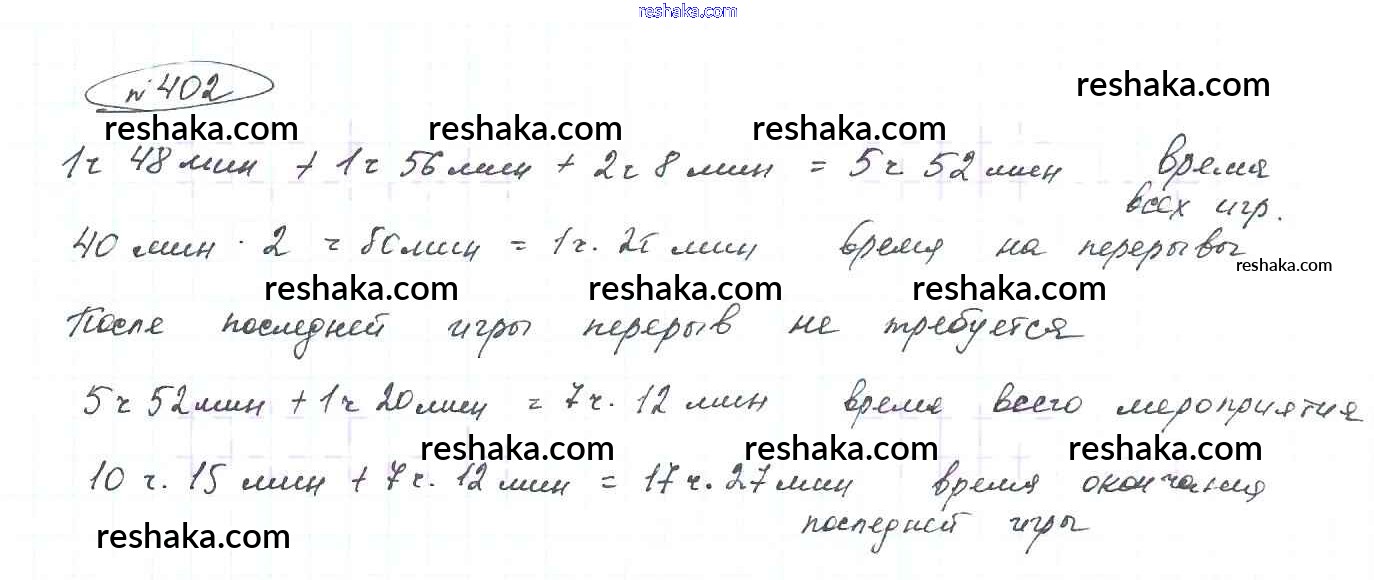 reshaka.com
№ 402
reshaka.com
reshaka.com reshaka.com reshaka.com
1ч 48 мин + 1ч 56 мин + 2ч 8 мин = 5ч. 52 мин время
всех игр.
40 мин · 2 = 80 мин = 1ч. 20 мин время на перерывы
reshaka.com
reshaka.com reshaka.com reshaka.com
После последней игры перерыв не требуется
5ч 52 мин + 1ч 20 мин = 7ч. 12 мин время всего мероприятия
reshaka.com reshaka.com reshaka.com
10 ч. 15 мин + 7ч. 12 мин = 17ч. 27 мин время окончания
последней игры
reshaka.com